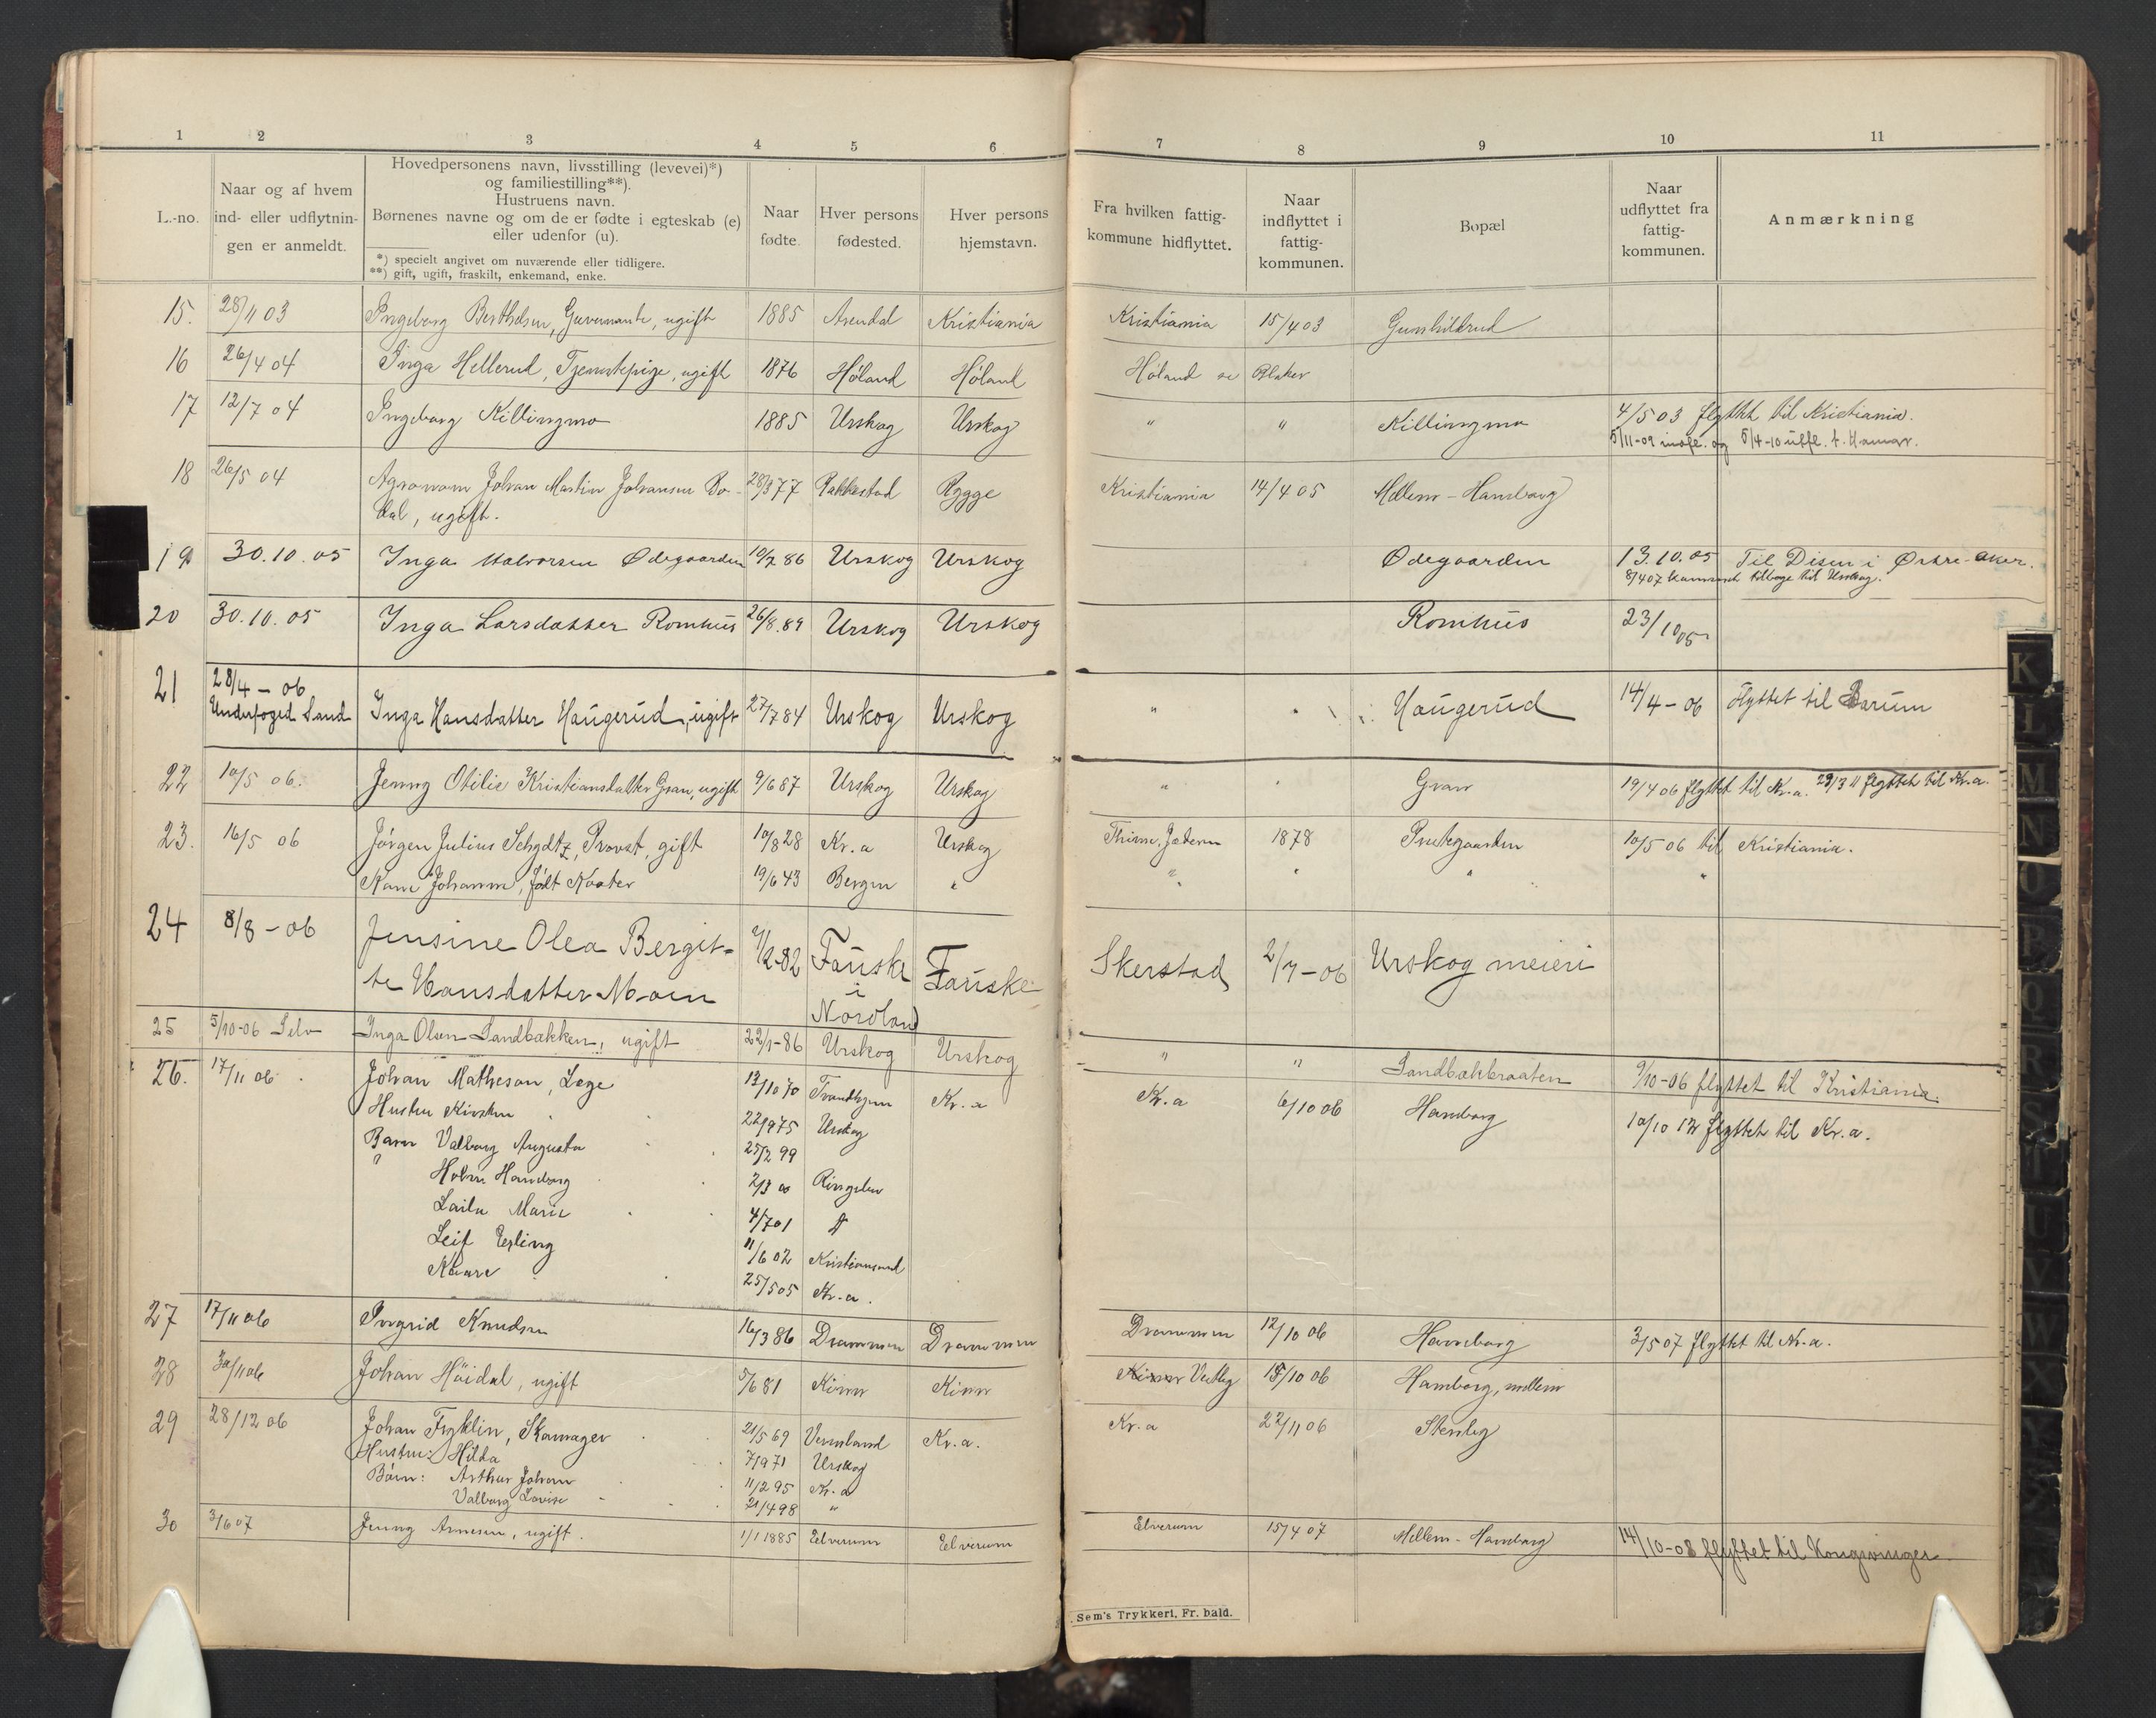 1 2 3 4 5 6 7 8 9 10 11
L.-no.
Naar og af hvem
ind- eller udflytnin-
gen er anmeldt.
Hovedpersonens navn, livsstilling (levevei)*)
og familiestilling**).
Hustruens navn.
Børnenes navne og om de er fødte i egteskab (e)
eller udenfor (u).
*) specielt angivet om nuværende eller tidligere.
**) gift, ugift, fraskilt, enkemand, enke.
Naar
fødte.
Hver persons
fødested.
Hver persons
hjemstavn.
Fra hvilken fattig-
kommune hidflyttet.
Naar
indflyttet i
fattig-
kommunen.
Bopæl
Naar
udflyttet fra
fattig-
kommunen.
Anmærkning
15. 28/11 03 Ingeborg Berthelsen, Guvernante, ugift 1885 Arendal Kristiania Kristiania 15/4 03 Gunhildrud
16 26/4 04 Inga Hellerud, Tjenestepige, ugift 1876 Høland Høland Høland Blaker
17 12/7 04 Ingeborg Killingmo 1885 Urskog Urskog " " Killingmo 4/5 03 flyttet til Kristiania.
5/11-09 indfl. og 5/4-10 udfl. t. Hamar.
18 26/5 04 Agronom Johan Martin Johansen Bo- 28/3 77 Rakkestad Rygge Kristiania 14/4 05 Mellem-Hamborg
dal, ugift.
19 30.10.05 Inga Halvorsen Ødegaarden 10/7 86 Urskog Urskog Ødegaarden 13.10.05 Til Disen i Østre-Aker.
8/4 07 kommet tilbage til Urskog.
20 30.10.05 Inga Larsdatter Romhus 26/8.89 Urskog Urskog Romhus 23/10 05
21 28/4-06
Underfoged Sand Inga Hansdatter Haugerud, ugift 27/7 84 Urskog Urskog " " Haugerud 14/4-06 Flyttet til Bærum
22 10/5 06. Jenny Otilie Kristiansdatter Gran, ugift 9/6 87 Urskog Urskog " " Gran 19/4 06 flyttet til Kr.a. 29/3 11 flyttet til Kr.a.
23. 16/5 06 Jørgen Julius Schydtz, Provst, gift 10/8 28 Kr.a Urskog Thime, Jæderen 1878 Prestegaarden 10/5 06 til Kristiania.
Johanne, født 19/6 43 Bergen " " " " "
24 8/8-06 Jensine Olea Bergit- Fauske Fauske Skerstad 2/7-06 Urskog meieri
te Hansdatter Moen i
Nordland
25 5/10-06 Selv Inga Olsen Sandbakken, ugift 22/1-86 Urskog Urskog " " Sandbækbraaten 9/10-06 flyttet til Kristiania.
26. 17/11 06 Johan Matheson, Læge 13/10 70 Trondhjem Kr.a Kr.a 6/10 06 Hamborg 10/10 12 flyttet til Kr.a.
Hustru Kirsten 22/9 75 Urskog
Barn Valborg Augusta 25/2 99
" Hamborg 2/3 00 Ringebu
Laila Marie 4/7 01
Leif Erling 11/6 02 Kristiansand
Kaare 25/5 05 Kr.a.
27 17/11 06 Ingrid Knudsen 16/3 86 Drammen Drammen Drammen 12/10 06 Hamborg 3/5 07 flyttet til Kr.a.
28 30/11 06 Johan Höidal, ugift 5/6 81 Kinn Kinn Kinn 15/10 06 Hamborg, mellem
29 28/12 06 Johan Fryklin, Skomager 21/5 69 Vermland Kr.a. Kr.a 22/11 06 Stenby
Hustru: Hilda 7/9 71 Urskog
Börn: Arthur Johan 11/2 95 Kr.a
Valborg Lovise 21/4 98 "
30 3/6 07 Jenny Arnesen, ugift. 1/1 1885 Elverum Elverum Elverum 15/4 07 Mellem-Hamborg 14/10-08 flyttet til Kongsvinger.
Sem's Trykkeri, Fr.hald.
K
L
M
N
O
P
Q
R
S
T
U
V
W
X
Y